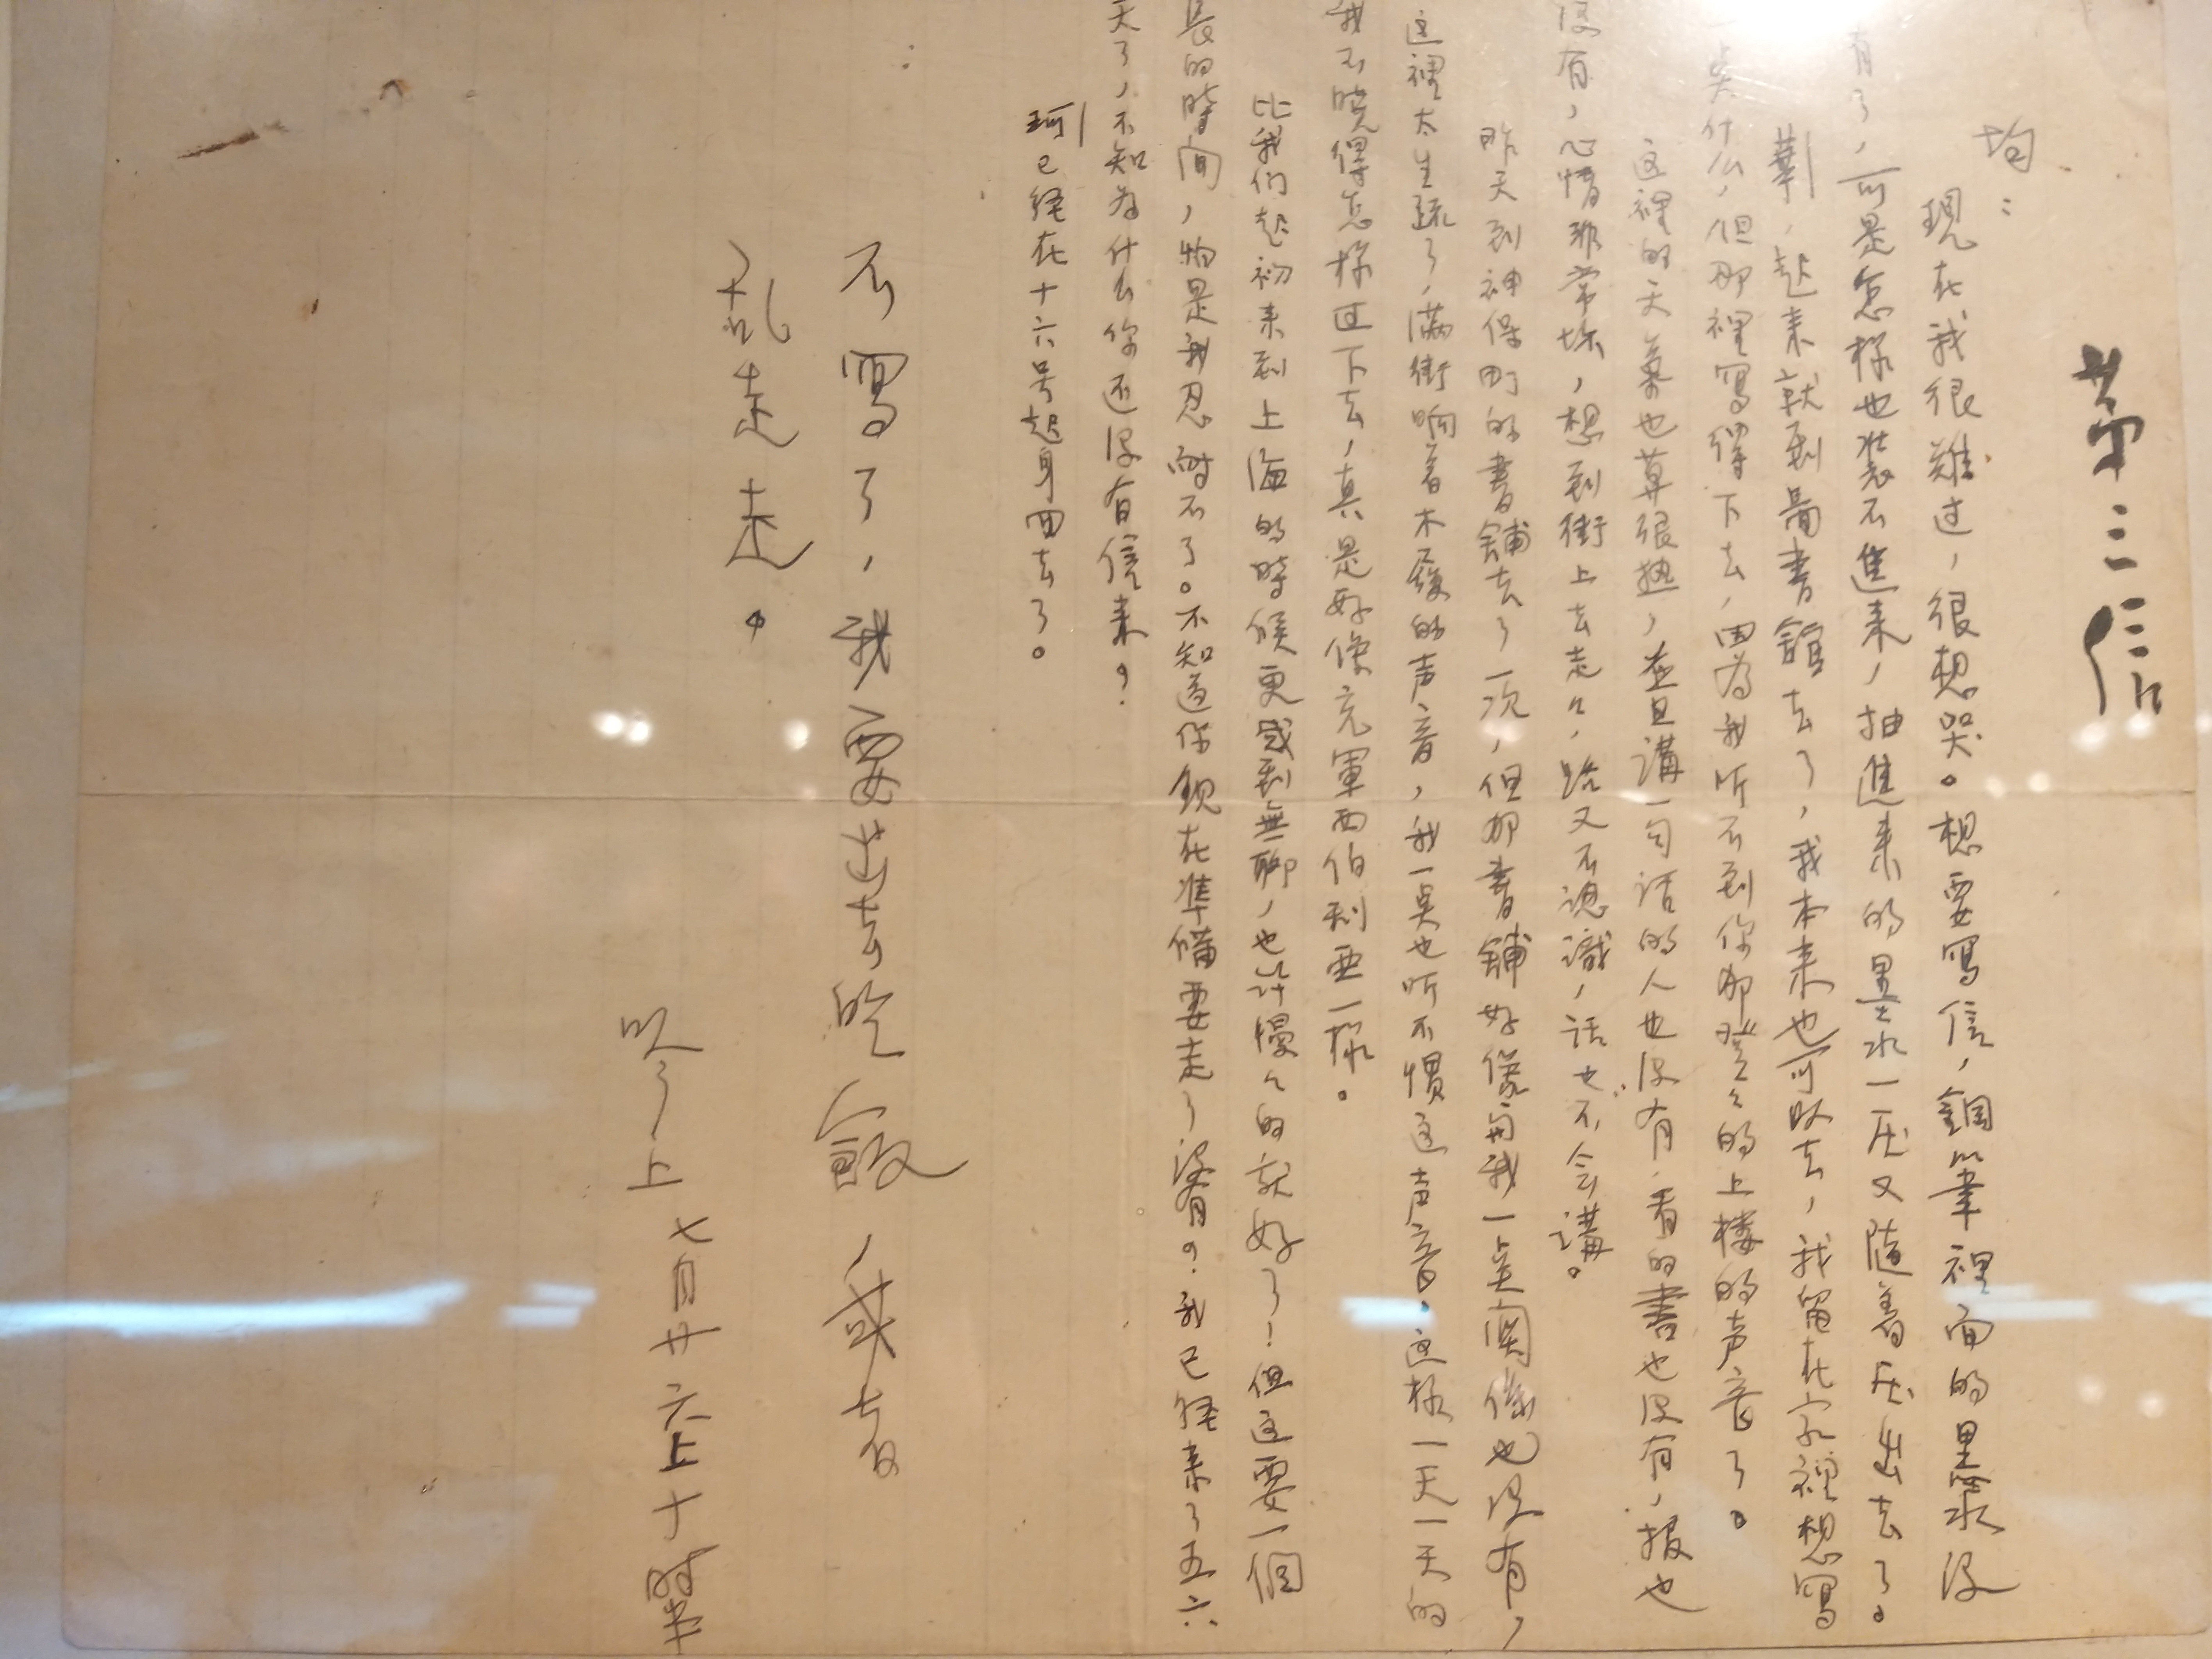 第三信
均：
現在我很難过，很想哭。想要寫信，鋼筆裡面的墨水没
有了，可是怎樣也装不進来，抽進来的墨水一压又随着压出去了。
華，起来就到圖書館去了，我本来也可以去，我留在家裡想寫
一点什么，但那裡寫得下去，因為我听不到你那登々的上樓的声音了。
这裡的天氣也算很热，並且講一句话的人也没有，看的書也没有，报也
没有，心情非常坏，想到街上去走々，路又不認識，话也不会講。
昨天到神保町的書鋪去了一次，但那書鋪好像與我一点関係也没有，
这裡太生疏了，满街响着木屐的声音，我一点也听不惯这声音。这樣一天一天的
我不晓得怎樣过下去，真是好像充軍西伯利亚一樣。
比我们起初来到上海的時候更感到無聊，也许慢々的就好了！但这要一個
長的時间，怕是我忍耐不了。不知道你現在準備要走了没有？我已経来了五六
天了，不知為什么你还没有信来？
珂已経在十六号起身回去了。
不寫了，我要出去吃飯，或者
乱走走。
吟上 七月廿六上十時半